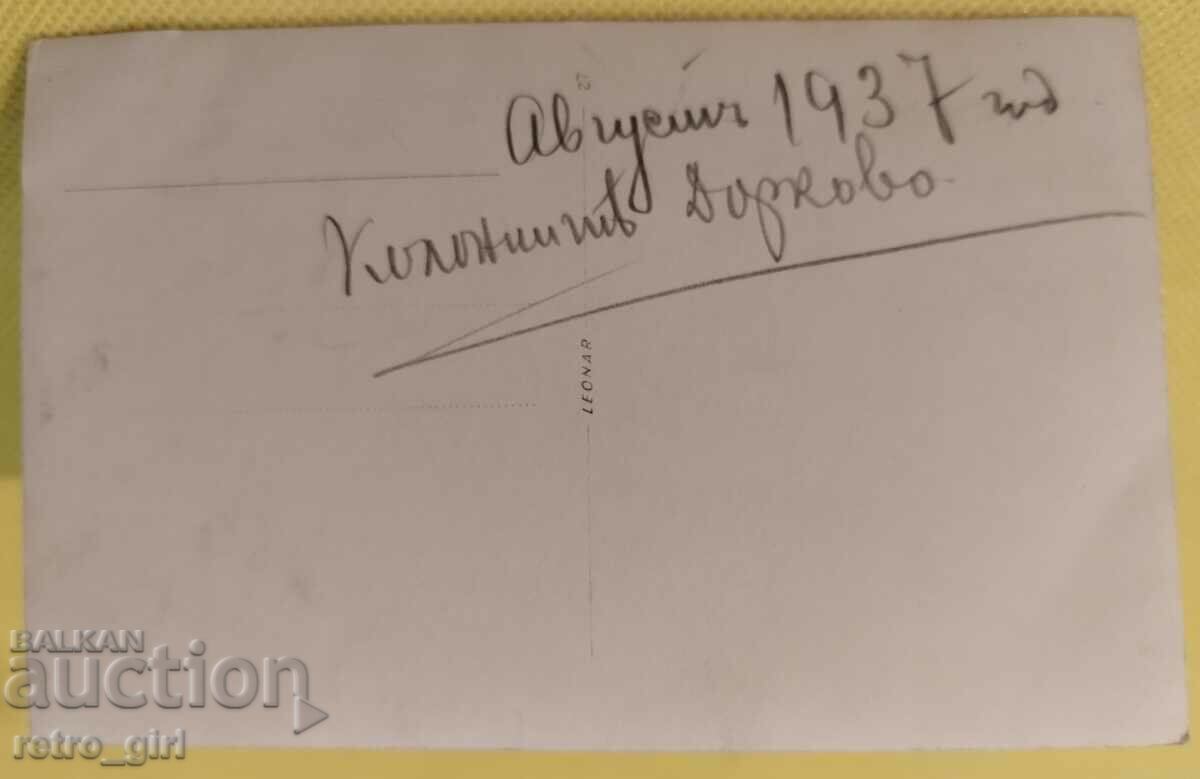 Августъ 1937 год
Колониитѣ Дорково.
LEONAR
BALKAN
auction
retro_girl